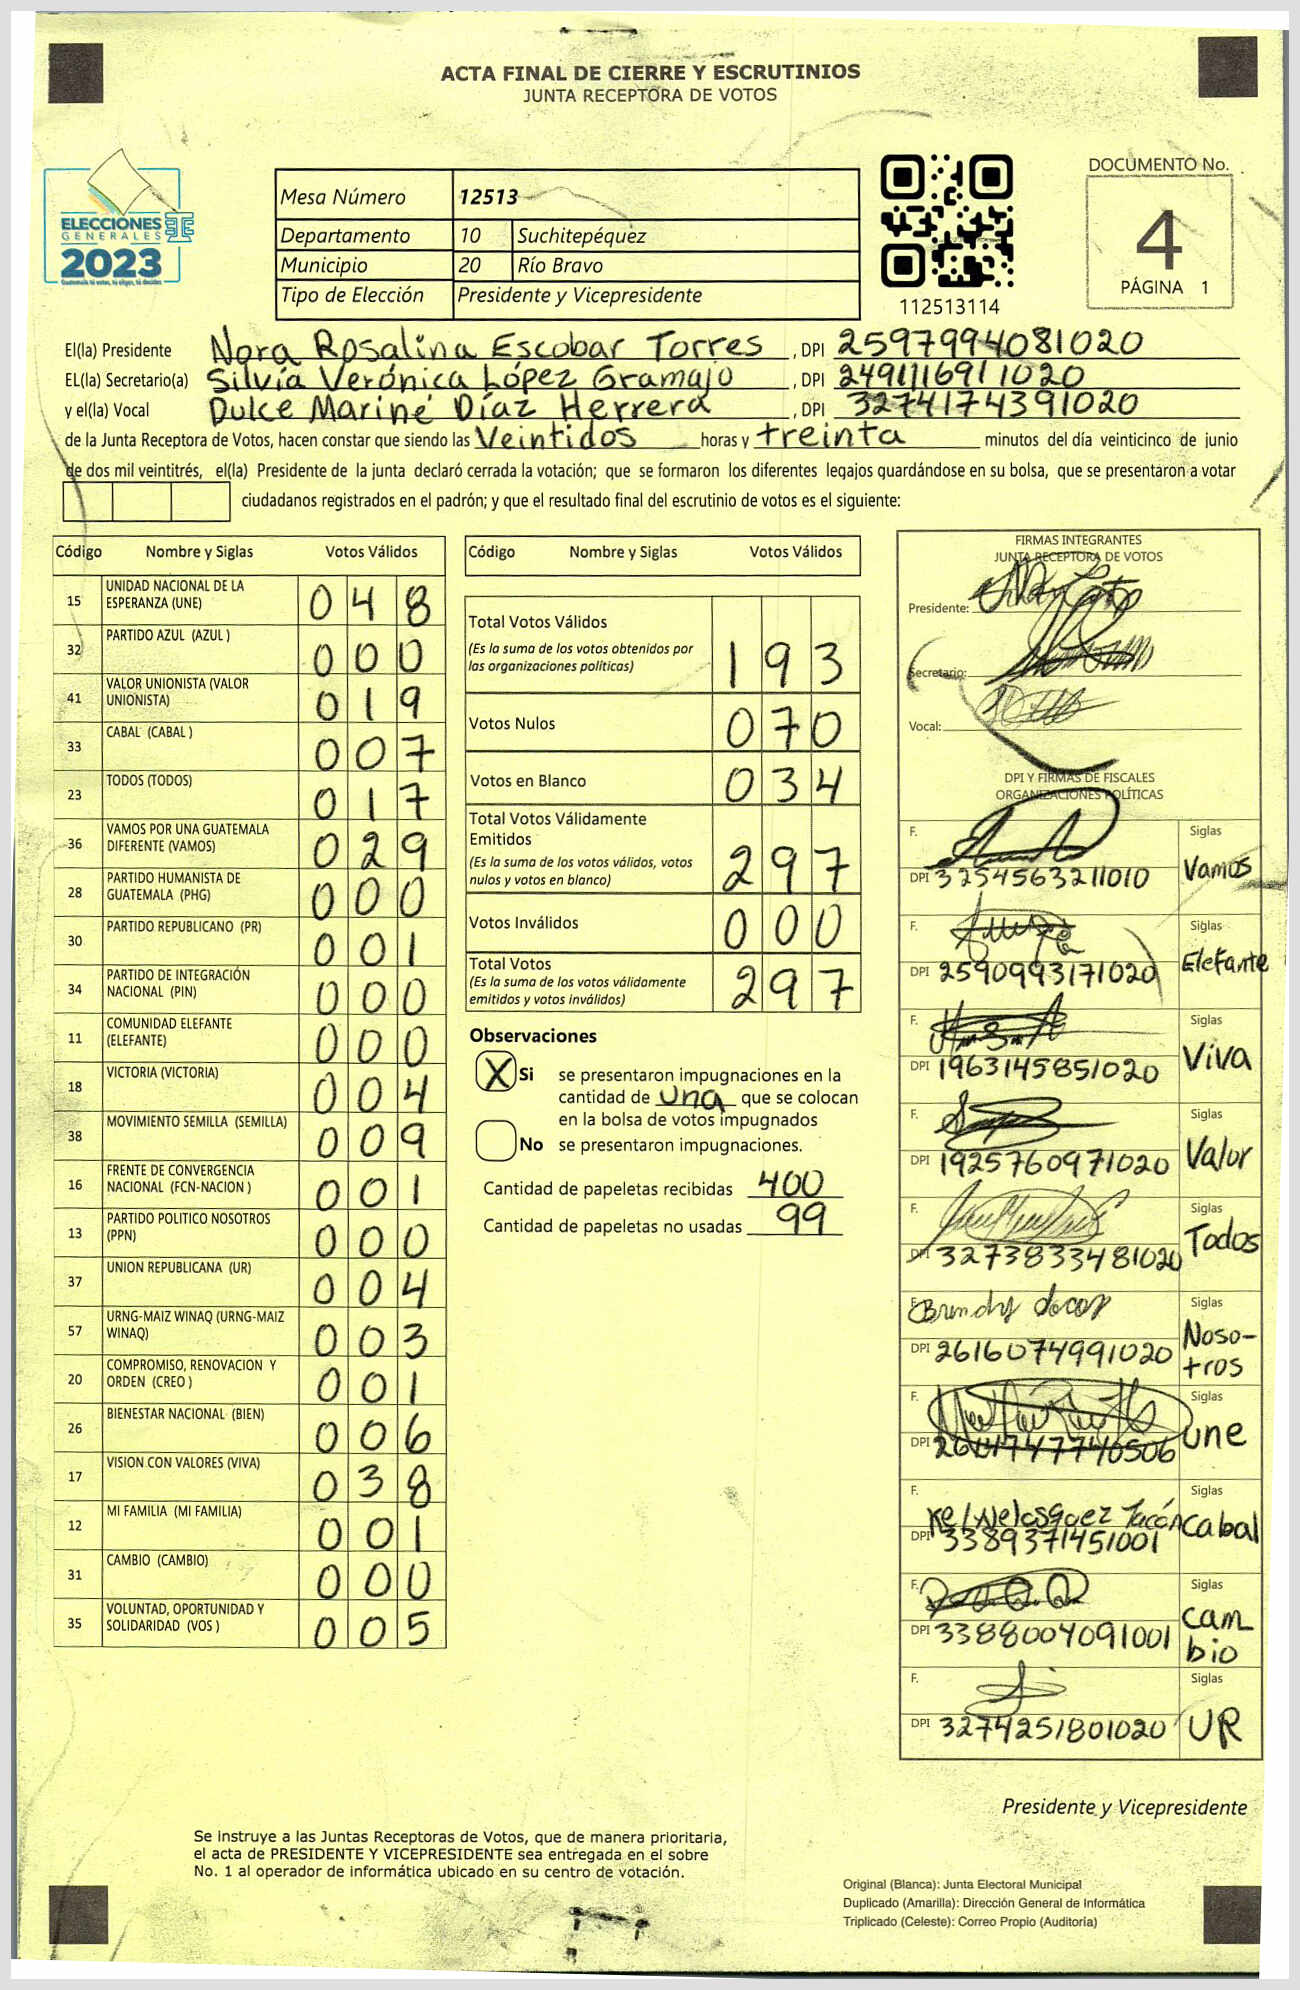 ACTA FINAL DE CIERRE Y ESCRUTINIOS
JUNTA RECEPTORA DE VOTOS
ELECCIONES
GENERALES
2023
Mesa Número 12513
Departamento 10 Suchitepéquez
Municipio 20 Río Bravo
Tipo de Elección Presidente y Vicepresidente
112513114
DOCUMENTO No.
4
PÁGINA 1
El(la) Presidente Nora Rosalina Escobar Torres , DPI 2597994081020
EL(la) Secretario(a) Silvia Verónica López Gramajo , DPI 2491116911020
y el(la) Vocal Dulce Mariné Díaz Herrera , DPI 3274174391020
de la Junta Receptora de Votos, hacen constar que siendo las Veintidos horas y treinta minutos del día veinticinco de junio
de dos mil veintitrés, el(la) Presidente de la junta declaró cerrada la votación; que se formaron los diferentes legajos quardándose en su bolsa, que se presentaron a votar
ciudadanos registrados en el padrón; y que el resultado final del escrutinio de votos es el siguiente:
Código Nombre y Siglas Votos Válidos
15 UNIDAD NACIONAL DE LA ESPERANZA (UNE) 048
32 PARTIDO AZUL (AZUL ) 000
41 VALOR UNIONISTA (VALOR UNIONISTA) 019
33 CABAL (CABAL ) 007
23 TODOS (TODOS) 017
36 VAMOS POR UNA GUATEMALA DIFERENTE (VAMOS) 029
28 PARTIDO HUMANISTA DE GUATEMALA (PHG) 000
30 PARTIDO REPUBLICANO (PR) 001
34 PARTIDO DE INTEGRACIÓN NACIONAL (PIN) 000
11 COMUNIDAD ELEFANTE (ELEFANTE) 000
18 VICTORIA (VICTORIA) 004
38 MOVIMIENTO SEMILLA (SEMILLA) 009
16 FRENTE DE CONVERGENCIA NACIONAL (FCN-NACION ) 001
13 PARTIDO POLITICO NOSOTROS (PPN) 000
37 UNION REPUBLICANA (UR) 004
57 URNG-MAIZ WINAQ (URNG-MAIZ WINAQ) 003
20 COMPROMISO, RENOVACION Y ORDEN (CREO ) 001
26 BIENESTAR NACIONAL (BIEN) 006
17 VISION CON VALORES (VIVA) 038
12 MI FAMILIA (MI FAMILIA) 001
31 CAMBIO (CAMBIO) 000
35 VOLUNTAD, OPORTUNIDAD Y SOLIDARIDAD (VOS ) 005
Código Nombre y Siglas Votos Válidos
Total Votos Válidos
(Es la suma de los votos obtenidos por
las organizaciones políticas) 193
Votos Nulos 070
Votos en Blanco 034
Total Votos Válidamente
Emitidos
(Es la suma de los votos válidos, votos
nulos y votos en blanco) 297
Votos Inválidos 000
Total Votos
(Es la suma de los votos válidamente
emitidos y votos inválidos) 297
Observaciones
X Si se presentaron impugnaciones en la
cantidad de una que se colocan
en la bolsa de votos impugnados
No se presentaron impugnaciones.
Cantidad de papeletas recibidas 400
Cantidad de papeletas no usadas 99
FIRMAS INTEGRANTES
JUNTA RECEPTORA DE VOTOS
Presidente:
Secretario:
Vocal:
DPI Y FIRMAS DE FISCALES
ORGANIZACIONES POLÍTICAS
F. Siglas
DPI 3254563211010 Vamos
F. Siglas
DPI 2590993171020 Elefante
F. Siglas
DPI 1963145851020 Viva
F. Siglas
DPI 1925760971020 Valor
F. Siglas
DPI 3273833481020 Todos
F. Siglas
DPI 2616074991020 Noso-
tros
F. Siglas
DPI une
F. Siglas
DPI 3389371451001 Cabal
F. Siglas
DPI 3388004091001 Cam
bio
F. Siglas
DPI 3274251801020 UR
Presidente y Vicepresidente
Se instruye a las Juntas Receptoras de Votos, que de manera prioritaria,
el acta de PRESIDENTE Y VICEPRESIDENTE sea entregada en el sobre
No. 1 al operador de informática ubicado en su centro de votación.
Original (Blanca): Junta Electoral Municipal
Duplicado (Amarilla): Dirección General de Informática
Triplicado (Celeste): Correo Propio (Auditoría)